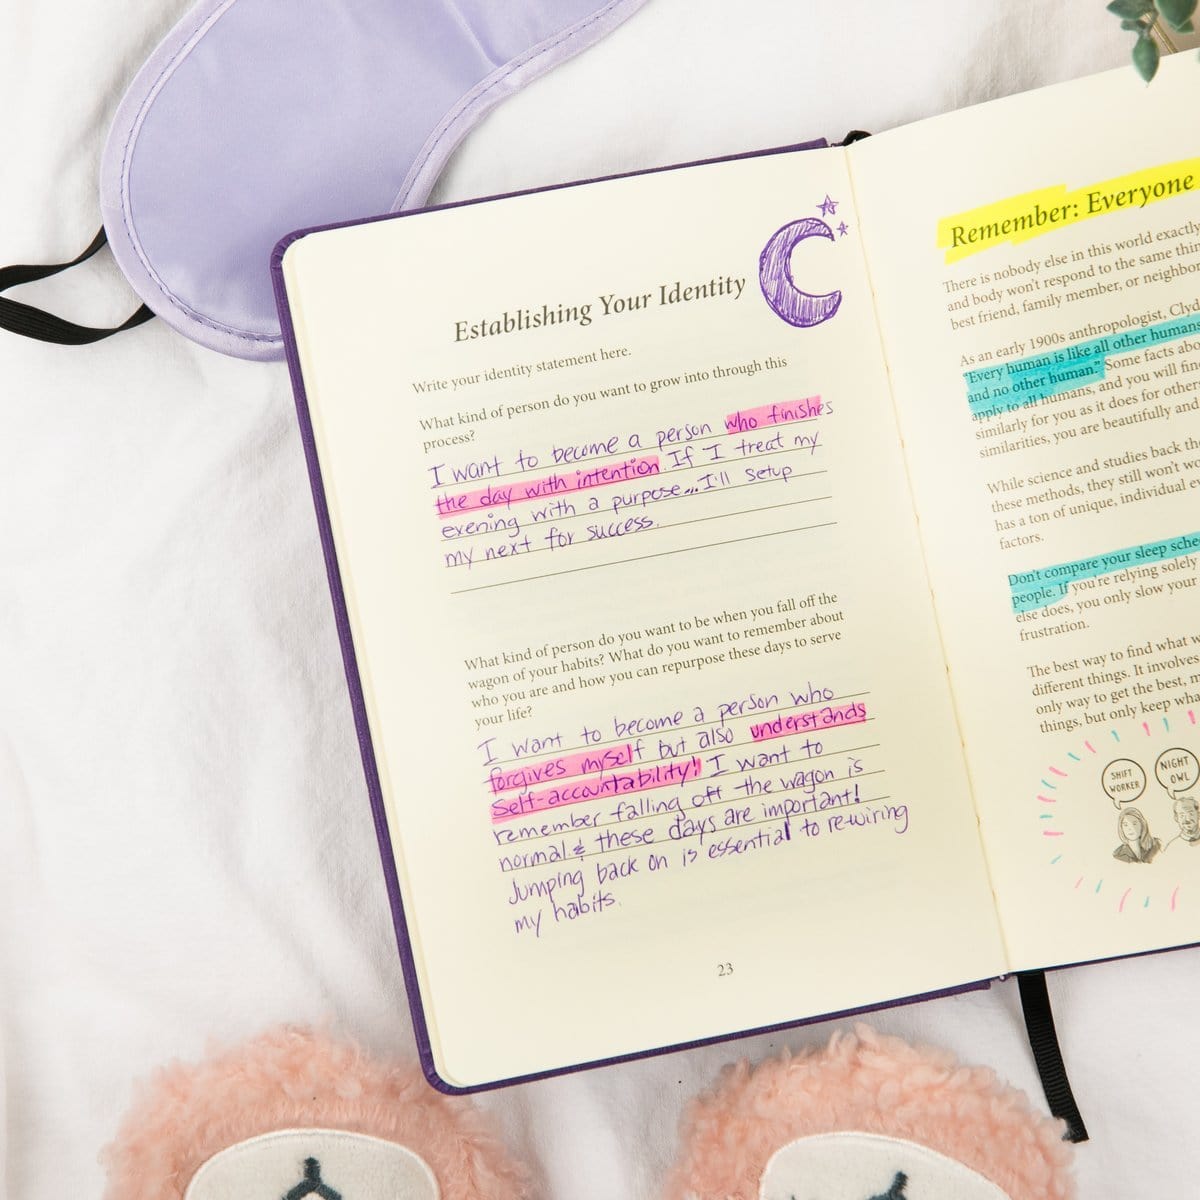 Establishing Your Identity
Write your identity statement here.
What kind of person do you want to grow into through this
process?
I want to become a person who finishes
the day with intention. If I treat my
evening with a purpose...I'll setup
my next for success.
What kind of person do you want to be when you fall off the
wagon of your habits? What do you want to remember about
who you are and how you can repurpose these days to serve
your life?
I want to become a person who
forgives myself but also understands
self-accountability! I want to
remember falling off the wagon is
normal & these days are important!
Jumping back on is essential to rewiring
my habits.
23
Remember: Everyone
There is nobody else in this world exactly
and body won't respond to the same thin
best friend, family member, or neighbor
As an early 1900s anthropologist, Clyd
"Every human is like all other humans
and no other human." Some facts abo
apply to all humans, and you will find
similarly for you as it does for other
similarities, you are beautifully and
While science and studies back th
these methods, they still won't wo
has a ton of unique, individual ev
factors.
Don't compare your sleep sche
people. If you're relying solely
else does, you only slow your
frustration.
The best way to find what w
different things. It involves
only way to get the best, m
things, but only keep wha
SHIFT
WORKER
NIGHT
OWL